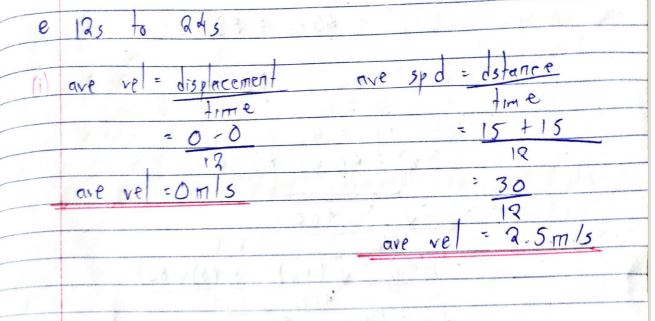 e 12s to 24s
(i) ave vel = displacement / time
= 0 - 0 / 12
ave vel = 0 m/s
ave spd = dstance / time
= 15 + 15 / 12
= 30 / 12
ave vel = 2.5 m/s